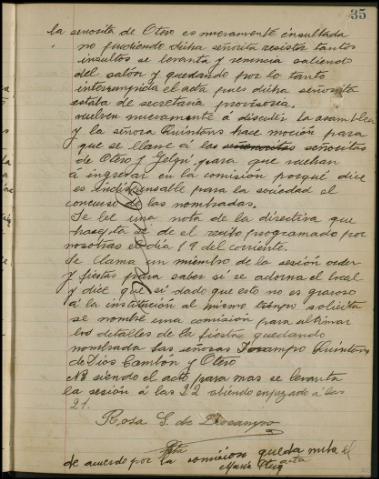 35
la señorita de Otero es nuevamente insultada
no pudiendo dicha señorita resistir tantos
insultos se levanta y renuncia saliendo
del salón y quedando por lo tanto
interrumpida el acta pues dicha señorita
estaba de secretaria provisoria.
vuelven nuevamente á discutir la asamblea
y la señora Quintáns hace moción para
que se llame á las señoritas
de Otero y para que vuelvan
á ingresar en la comisión porqué dice
es indispensable para la sociedad el
concurso de las nombradas.
Se lee una nota de la directiva que
acepta se de el recibo programado por
nosotras el día 19 del corriente.
Se llama un miembro de la sesión orden
y fiestas para saber si se adorna el local
y dice que si dado que esto no es gravoso
á la institución al mismo tiempo solicita
se nombre una comisión para ultimar
los detalles de la fiesta quedando
nombrada las señoras Docampo Quintáns
de Dios Cambón y Otero
No siendo el acto para mas se levanta
la sesión á las 22 abiendo enpezado á las
21.
Rosa S. de Docampo
Pta
de acuerdo por la comision queda nula el
acta
María